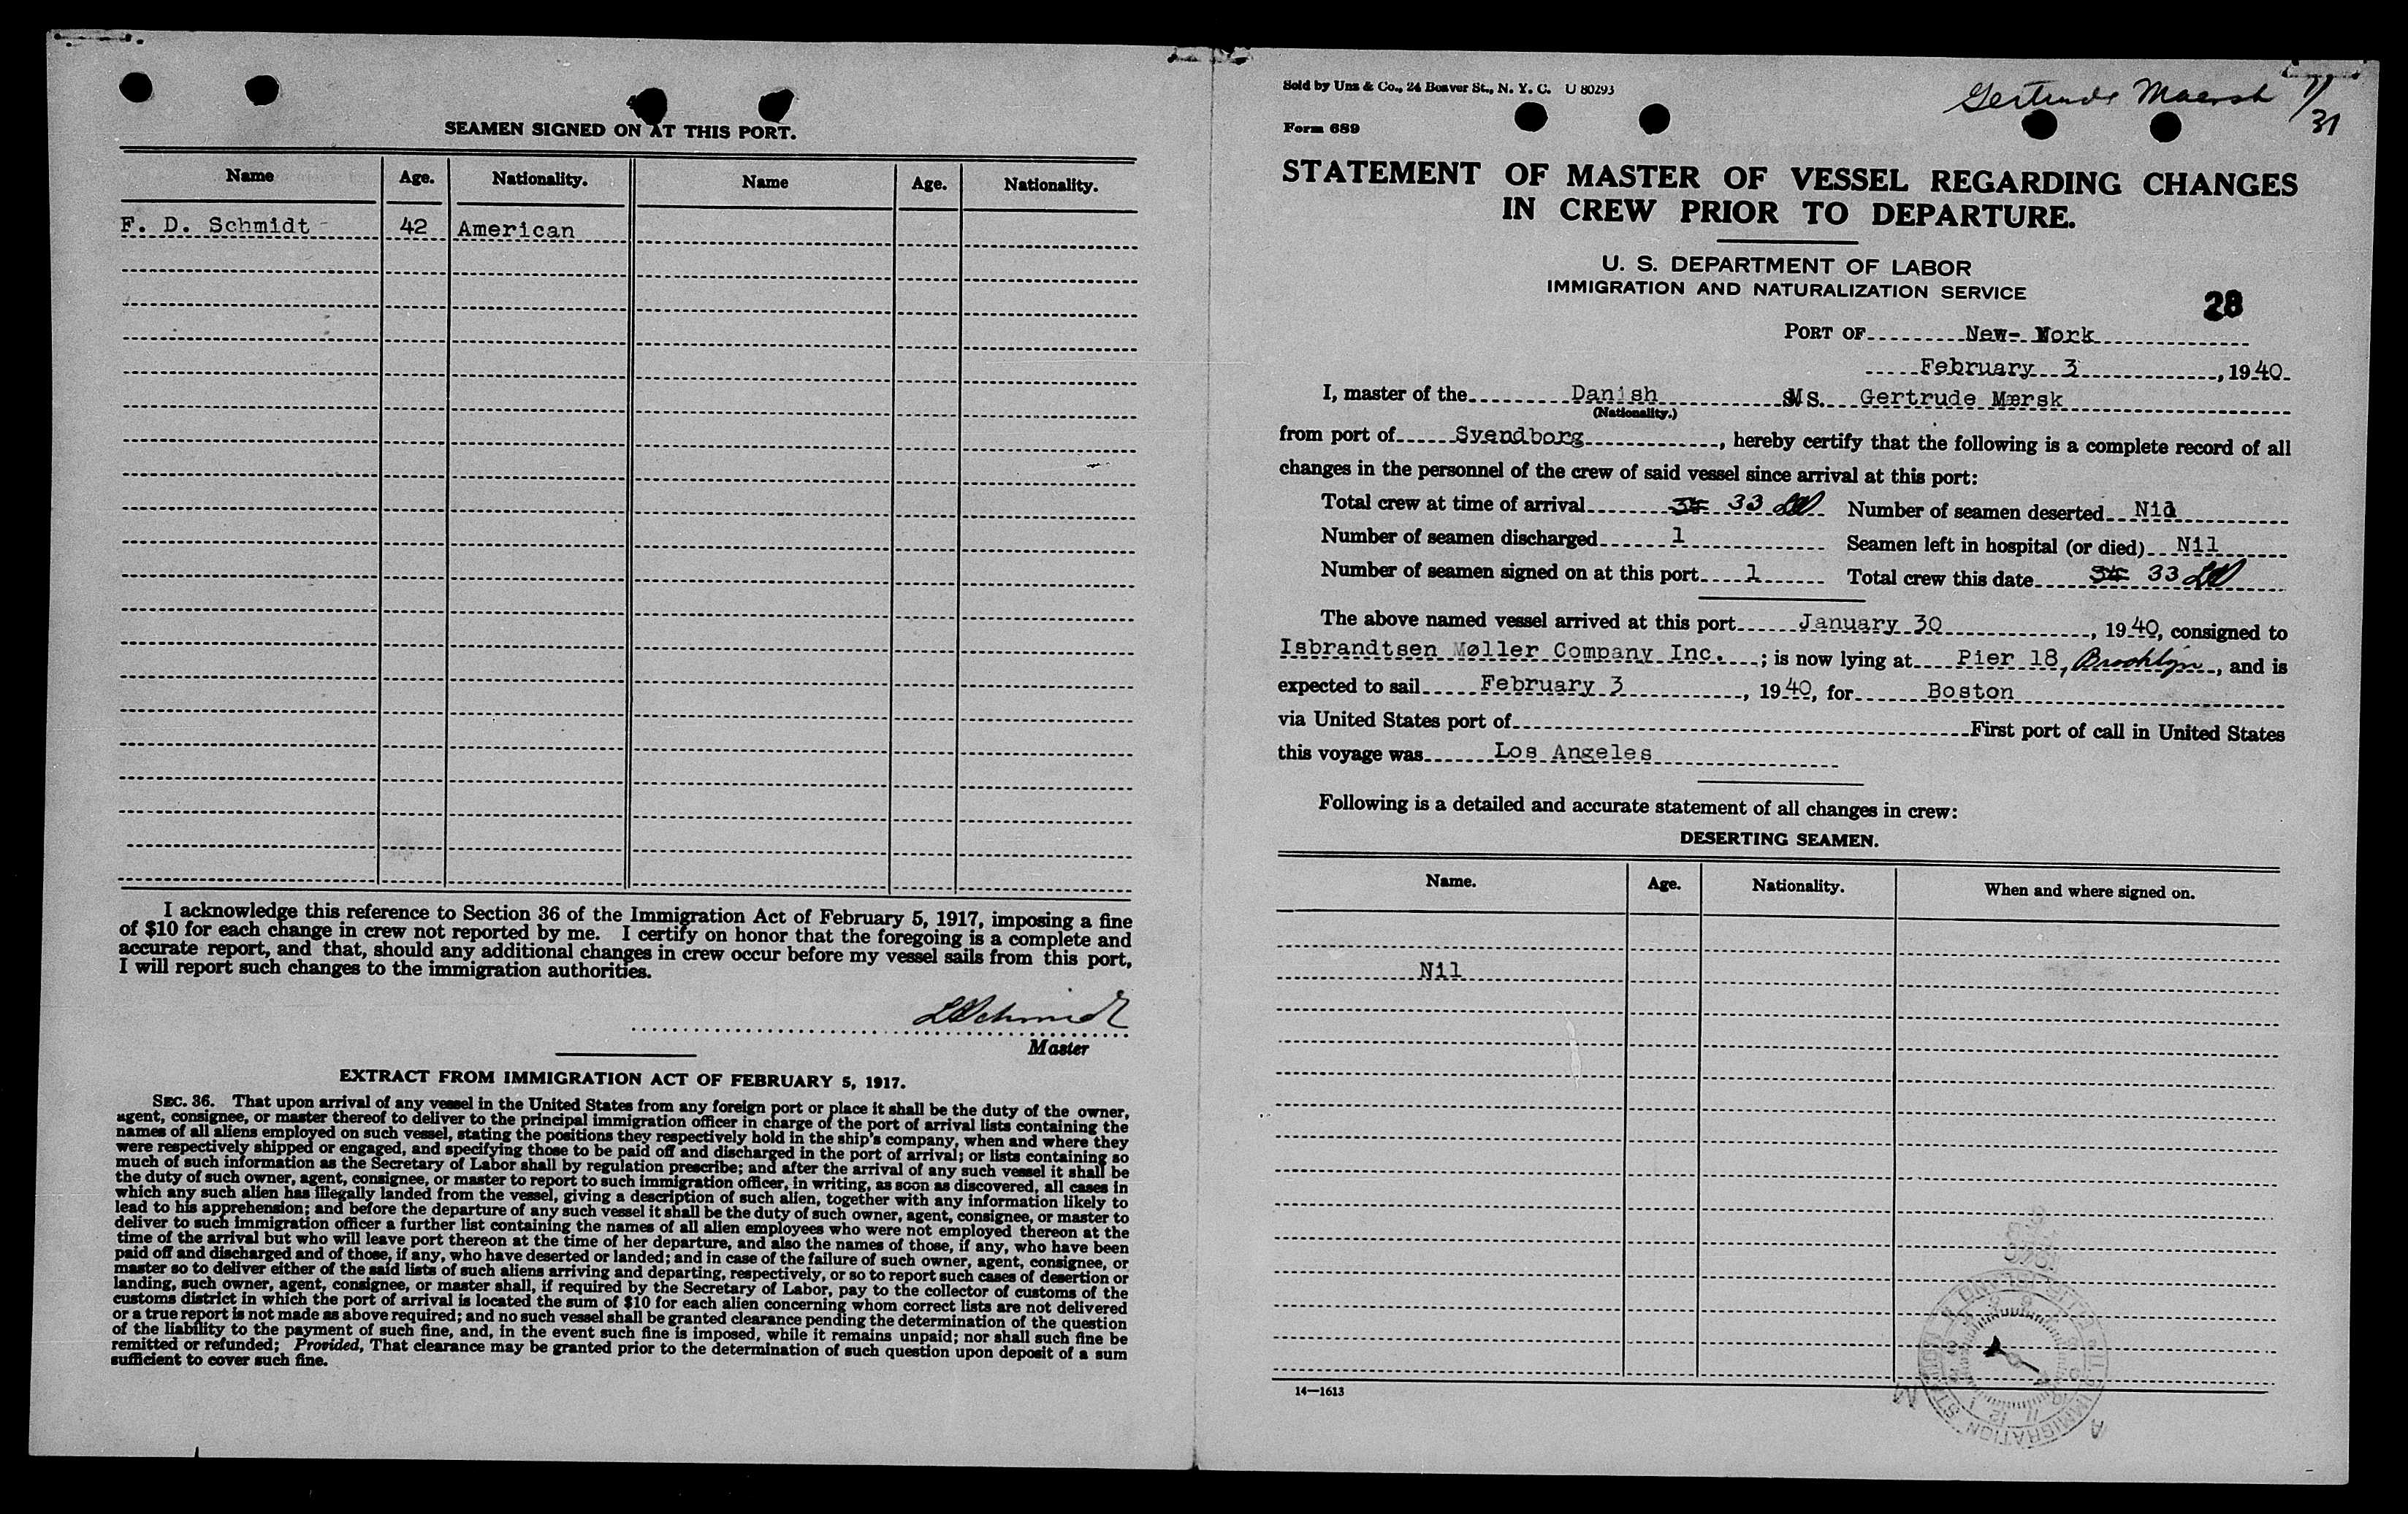 SEAMEN SIGNED ON AT THIS PORT.
Name Age. Nationality. Name Age. Nationality.
F. D. Schmidt 42 American
I acknowledge this reference to Section 36 of the Immigration Act of February 5, 1917, imposing a fine
of $10 for each change in crew not reported by me. I certify on honor that the foregoing is a complete and
accurate report, and that, should any additional changes in crew occur before my vessel sails from this port,
I will report such changes to the immigration authorities.
Master
EXTRACT FROM IMMIGRATION ACT OF FEBRUARY 5, 1917.
SEC. 36. That upon arrival of any vessel in the United States from any foreign port or place it shall be the duty of the owner,
agent, consignee, or master thereof to deliver to the principal immigration officer in charge of the port of arrival lists containing the
names of all aliens employed on such vessel, stating the positions they respectively hold in the ship's company, when and where they
were respectively shipped or engaged, and specifying those to be paid off and discharged in the port of arrival; or lists containing so
much of such information as the Secretary of Labor shall by regulation prescribe; and after the arrival of any such vessel it shall be
the duty of such owner, agent, consignee, or master to report to such immigration officer, in writing, as soon as discovered, all cases in
which any such alien has illegally landed from the vessel, giving a description of such alien, together with any information likely to
lead to his apprehension; and before the departure of any such vessel it shall be the duty of such owner, agent, consignee, or master to
deliver to such immigration officer a further list containing the names of all alien employees who were not employed thereon at the
time of the arrival but who will leave port thereon at the time of her departure, and also the names of those, if any, who have been
paid off and discharged and of those, if any, who have deserted or landed; and in case of the failure of such owner, agent, consignee, or
master so to deliver either of the said lists of such aliens arriving and departing, respectively, or so to report such cases of desertion or
landing, such owner, agent, consignee, or master shall, if required by the Secretary of Labor, pay to the collector of customs of the
customs district in which the port of arrival is located the sum of $10 for each alien concerning whom correct lists are not delivered
or a true report is not made as above required; and no such vessel shall be granted clearance pending the determination of the question
of the liability to the payment of such fine, and, in the event such fine is imposed, while it remains unpaid; nor shall such fine be
remitted or refunded; Provided, That clearance may be granted prior to the determination of such question upon deposit of a sum
sufficient to cover such fine.
Sold by Unz & Co., 24 Beaver St., N. Y. C. U 80293
Gertrude Maersk 1/31
Form 689
STATEMENT OF MASTER OF VESSEL REGARDING CHANGES
IN CREW PRIOR TO DEPARTURE.
U. S. DEPARTMENT OF LABOR
IMMIGRATION AND NATURALIZATION SERVICE
28
PORT OF New- York
February 3, 1940
I, master of the Danish MS. Gertrude Mærsk
(Nationality.)
from port of Svendborg, hereby certify that the following is a complete record of all
changes in the personnel of the crew of said vessel since arrival at this port:
Total crew at time of arrival 33 Number of seamen deserted Nil
Number of seamen discharged 1 Seamen left in hospital (or died) Nil
Number of seamen signed on at this port 1 Total crew this date 33
The above named vessel arrived at this port January 30, 1940, consigned to
Isbrandtsen Møller Company Inc. ; is now lying at Pier 18, Brooklyn, and is
expected to sail February 3, 1940, for Boston
via United States port of First port of call in United States
this voyage was Los Angeles
Following is a detailed and accurate statement of all changes in crew:
DESERTING SEAMEN.
Name. Age. Nationality. When and where signed on.
Nil
14—1613